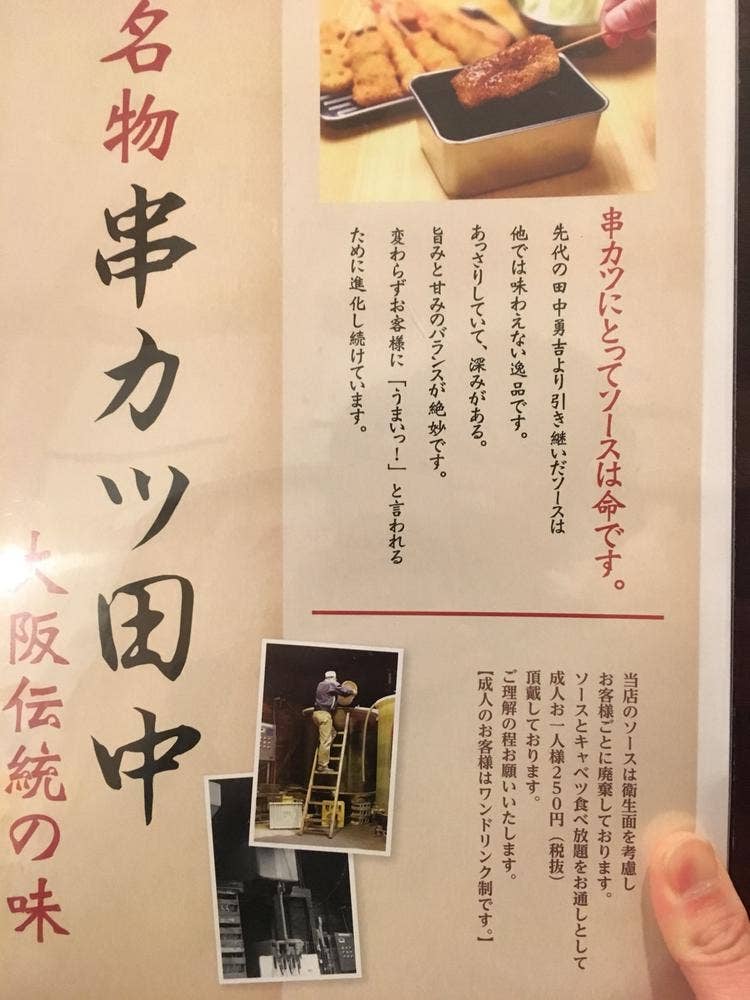 串カツにとってソースは命です。
先代の田中勇吉より引き継いだソースは
他では味わえない逸品です。
あっさりしていて、深みがある。
旨みと甘みのバランスが絶妙です。
変わらずお客様に「うまいっ!」と言われる
ために進化し続けています。
当店のソースは衛生面を考慮し
お客様ごとに廃棄しております。
ソースとキャベツ食べ放題をお通しとして
成人お一人様250円(税抜)
頂戴しております。
ご理解の程お願いいたします。
【成人のお客様はワンドリンク制です。】
名物
串カツ田中
大阪伝統の味